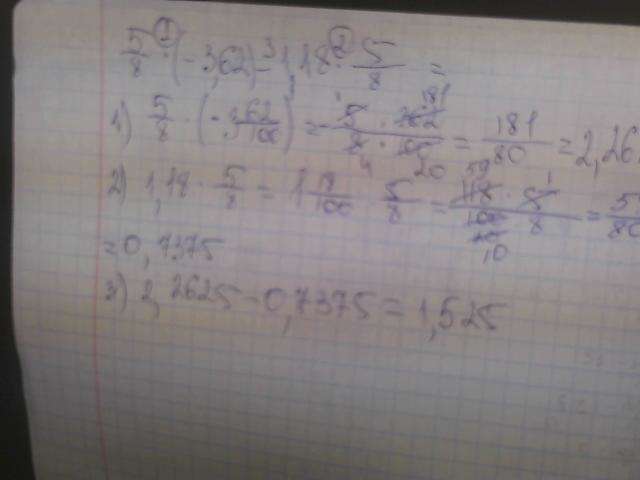 5/8 · (-3,62) - 1,18 · 5/8 =
1) 5/8 · (-3 62/100) = - 5 · 362 181 / 8 4 · 100 20 = 181/80 = 2,26
2) 1,18 · 5/8 = 1 18/100 · 5/8 = 118 59 · 5 1 / 100 20 10 · 8 = 5 /80
= 0,7375
3) 2,2625 - 0,7375 = 1,525